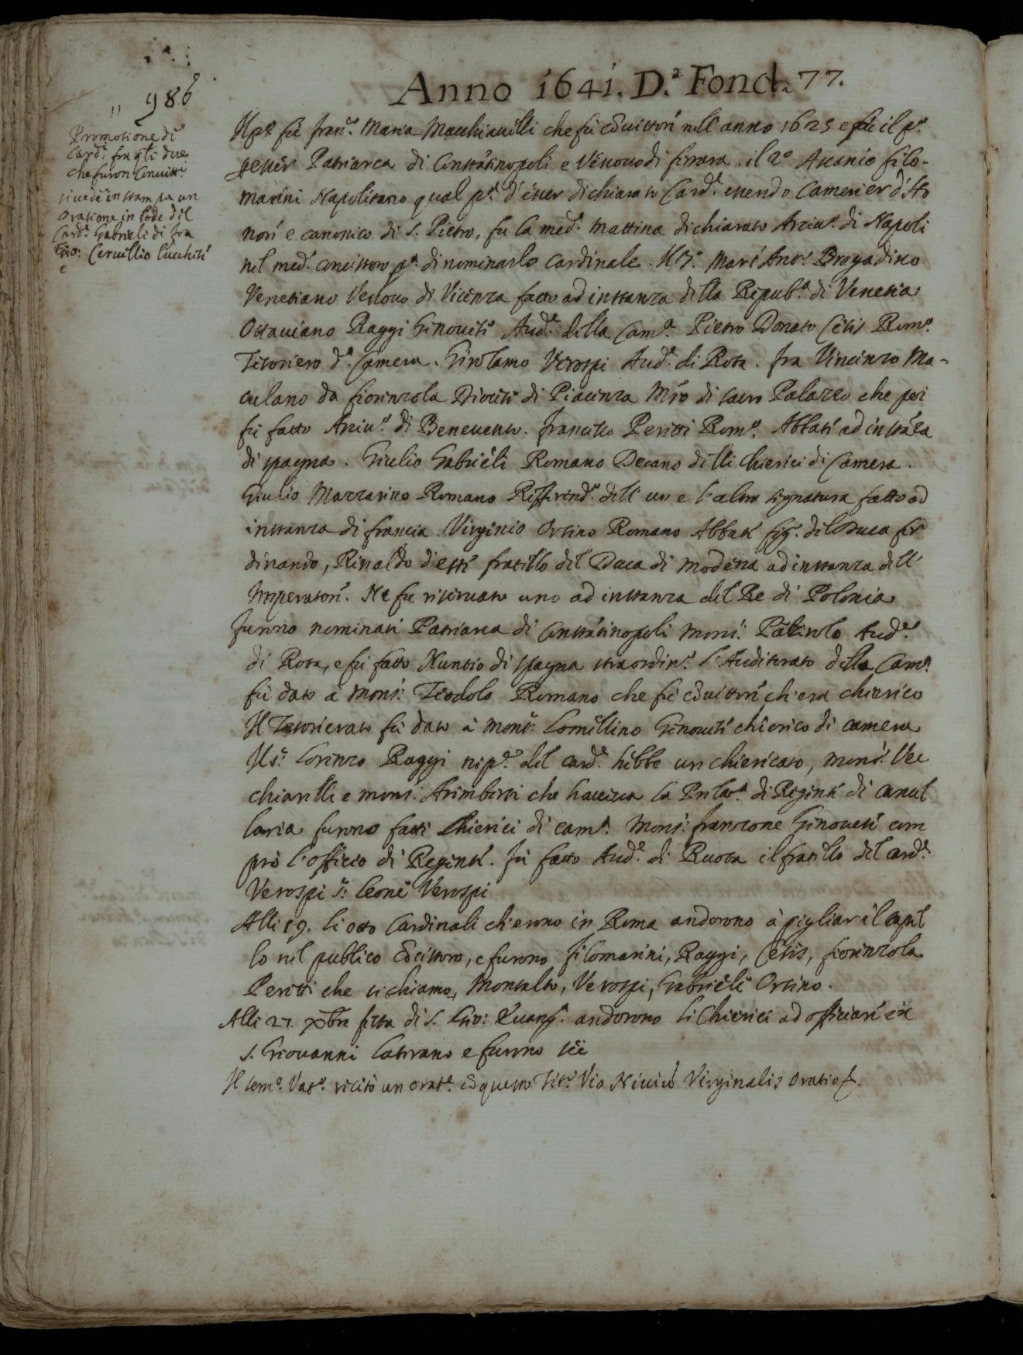 986
Anno 1641. D.ª Fond. 77.
Promotione di
Card.i fra q.li due
che furon Convitt.i
si vede in stampa un
Oratione in lode del
Card.l Gabrieli di fra
Gio: Cervillio Lucchesi
Il p.º fu Fran.º Maria Macchiavelli che fu cõvittorĩ nell'anno 1625 e fu il p.º
Patriarca di Constãtinopoli e Vescovo di ferrara. il 2.º Ascanio filo-
marini Napolitano qual p.ª d'esser dichiarato Card.e essendo Camerier d'Ho
nori e canonico di S. Pietro, fu la med.ª mattina dichiarato Arciv.º di Napoli
nel med.º concistoro p.ª di nominarlo Cardinale. Il 3.º Marc'Ant.º Bragadino
Venetiano Vescovo di Vicenza fatto ad instanza della Repub.ª di Venetia
Ottaviano Raggi Genovese Aud.e della Cam.ª Pietro Donato Cesis Rom.º
Tesoriero d.ª Camera. Girolamo Verospi Aud.e di Rota. fra Vincenzo Ma-
culano da fiorenzola Diocesi di Piacenza Mrõ di sacro Palazzo che poi
fu fatto Arciv.º di Benevento. Francesco Peretti Rom.º Abbate ad instãza
di spagna. Giulio Gabrieli Romano Decano delli Chierici di Camera.
Giulio Mazzarino Romano Refferend.º dell'una e l'altra signatura fatto ad
instanza di francia. Virginio Orsino Romano Abbate fig.º del Duca fer
dinando, Rinaldo d'Este fratello del Duca di Modena ad instanza dell'
Imperatorĩ. Ne fu riservato uno ad instanza del Re di Polonia
furono nominati Patriarca di Constãtinopoli Mons.r Aud.e
di Rota, e fu fatto Nuntio di spagna straordin.º l'Auditorato della Cam.ª
fu dato à Mons.r Teodolo Romano che fu cõvittorĩ ch'era chierico
Il Tesorierato fu dato à Mons.r Lomellino Genovese chierico di camera
Il S.r Lorenzo Raggi nip.e del Card.e hebbe un chiericato, mons.r Vec
chiarelli e mons.r Arimberti che haveva la di Regente di Cancel
laria furono fatti Chierici di cam.ª Mons.r franzone Genovese com
prò l'officio di Regente. fu fatto Aud.e di Ruota il fratello del Card.e
Verospi S.r Leone Verospi
Alli 19. li otto Cardinali ch'erono in Roma andorono à pigliar il Capel
lo nel publico Cõcistoro, e furono filomarini, Raggi, Cesis, fiorenzola
Peretti che si chiamò, Montalto, Verospi, Gabrieli Orsino.
Alli 27. Xbre festa di S. Gio: Evang.ª andorono li Chierici ad officiare in
S. Giovanni Laterano e furono sei
Il sem.º Vat.º recitò un orat.e cõ questo Tit.º Via Nivis Virginalis Oratio &.